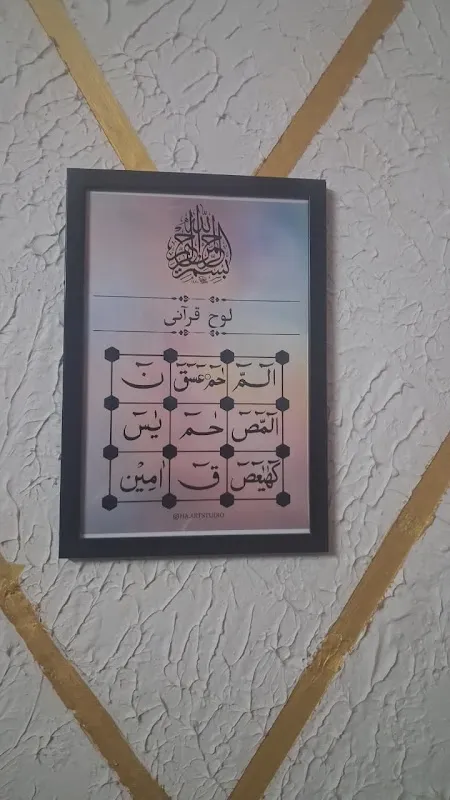 بسم الله الرحمن الرحيم
لوح قرآنی
الٓمّٓ حٰمٓ عٓسٓقٓ نٓ
الٓمّٓصٓ حٰمٓ يٰسٓ
كٓهٰيٰعٓصٓ قٓ اٰمِيْن